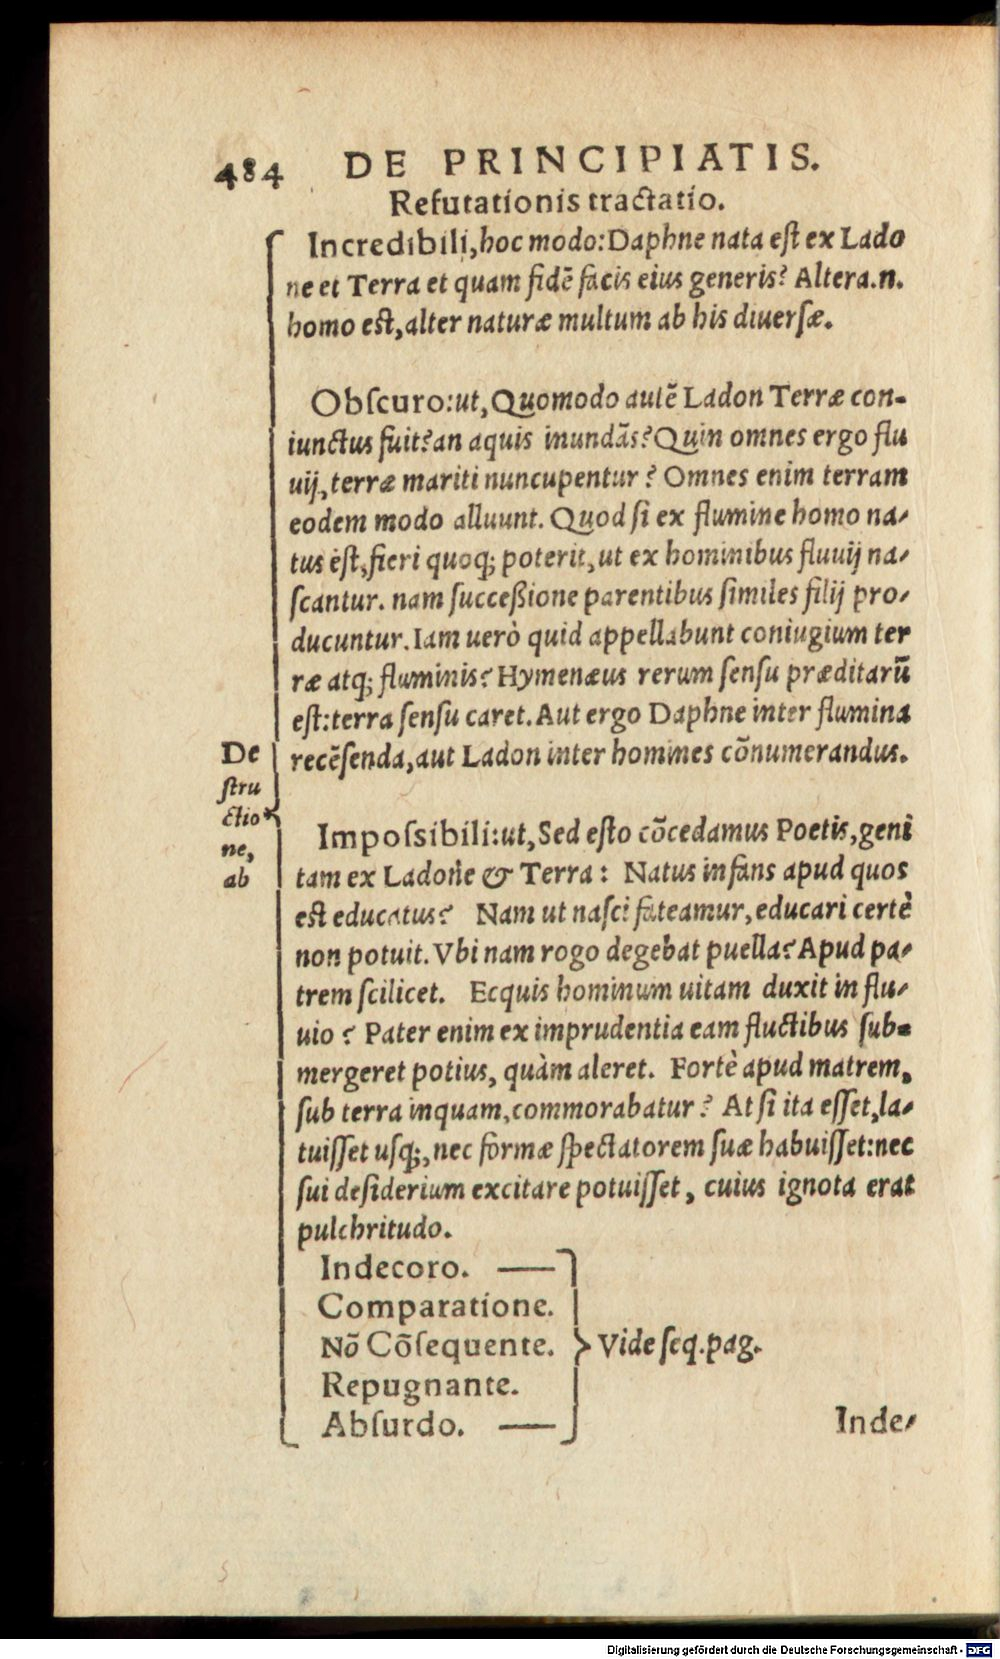 484 DE PRINCIPIATIS.
Refutationis tractatio.
Incredibili, hoc modo: Daphne nata eſt ex Lado
ne et Terra et quam fidē facis eius generis? Altera.n.
homo eſt, alter naturæ multum ab his diuerſæ.
Obſcuro: ut, Quomodo autē Ladon Terræ con-
iunctus fuit? an aquis inundās? Quin omnes ergo flu
uij, terræ mariti nuncupentur? Omnes enim terram
eodem modo alluunt. Quod ſi ex flumine homo na-
tus eſt, fieri quoq; poterit, ut ex hominibus fluuij na-
ſcantur. nam ſucceßione parentibus ſimiles filij pro-
ducuntur. Iam uerò quid appellabunt coniugium ter
ræ atq; fluminis? Hymenæus rerum ſenſu præditarū
eſt: terra ſenſu caret. Aut ergo Daphne inter flumina
recēſenda, aut Ladon inter homines cōnumerandus.
De
ſtru
ctio
ne,
ab
Impoſsibili: ut, Sed eſto cōcedamus Poetis, geni
tam ex Ladone & Terra: Natus infans apud quos
eſt educatus? Nam ut naſci fateamur, educari certè
non potuit. Vbi nam rogo degebat puella? Apud pa-
trem ſcilicet. Ecquis hominum uitam duxit in flu-
uio? Pater enim ex imprudentia eam fluctibus ſub-
mergeret potius, quàm aleret. Fortè apud matrem,
ſub terra inquam, commorabatur? At ſi ita eſſet, la-
tuiſſet uſq;, nec formæ ſpectatorem ſuæ habuiſſet: nec
ſui deſiderium excitare potuiſſet, cuius ignota erat
pulchritudo.
Indecoro.
Comparatione.
Nō Cōſequente. Vide ſeq. pag.
Repugnante.
Abſurdo.
Inde-
Digitalisierung gefördert durch die Deutsche Forschungsgemeinschaft - DFG